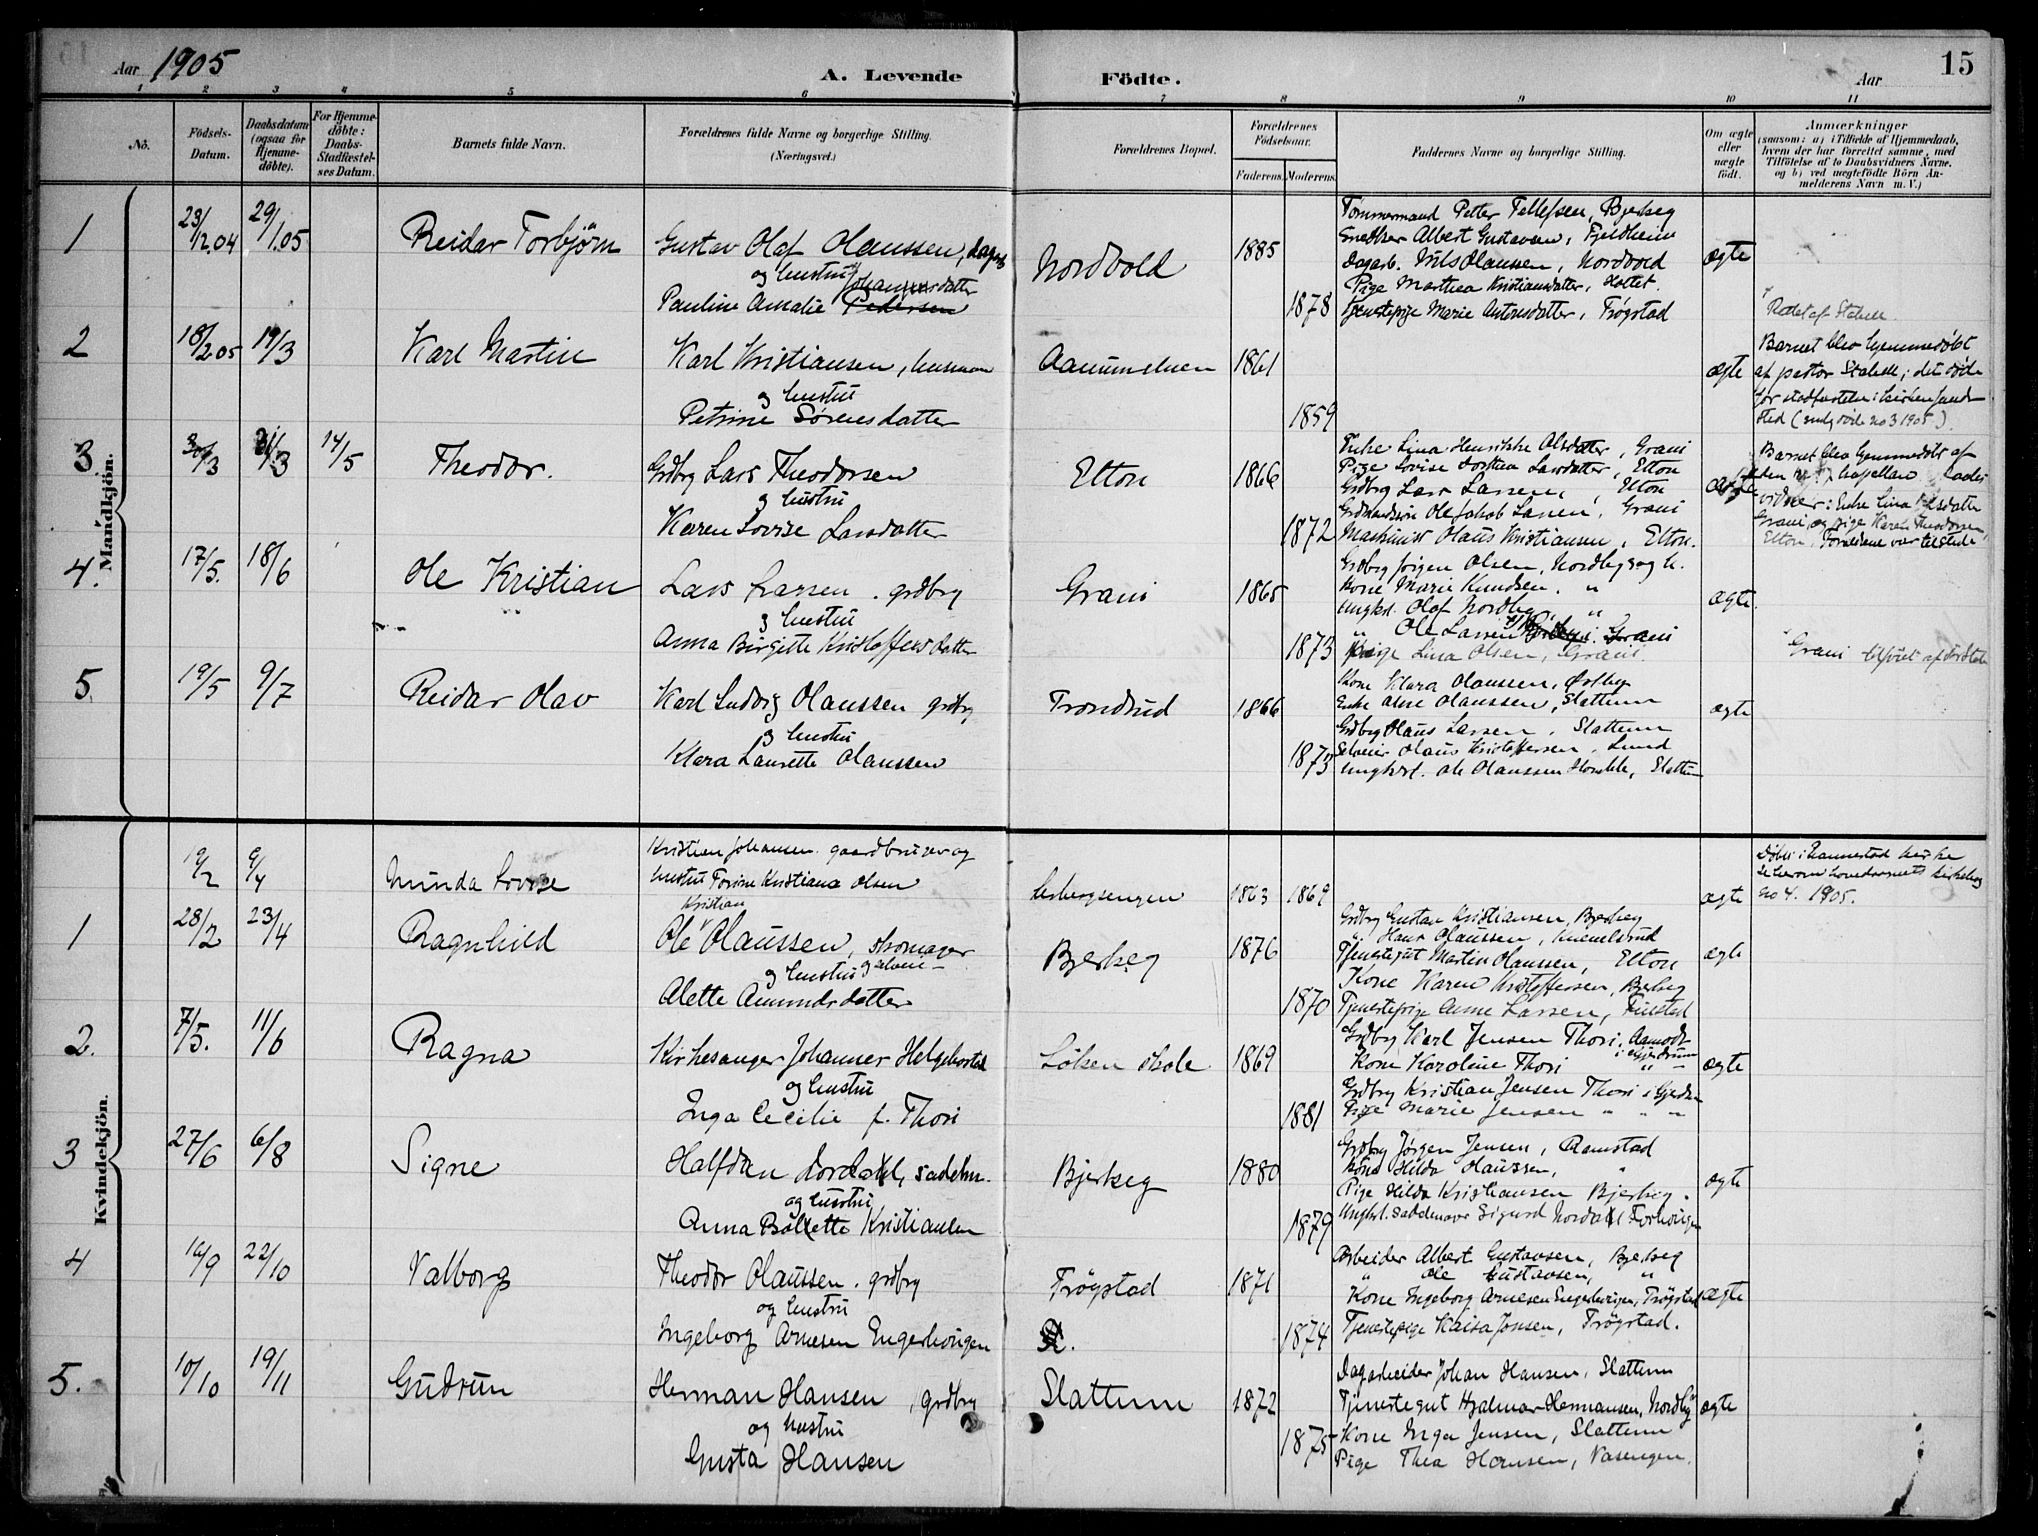 Aar 1905
A. Levende Födte.
Aar
15
1 2 3 4 5 6 7 8 9 10 11
No.
Födsels-Datum.
Daabsdatum (ogsaa for Hjemme-döbte).
For Hjemme-döbte: Daabs-Stadfæstel-ses Datum.
Barnets fulde Navn.
Forældrenes fulde Navne og borgerlige Stilling.
(Næringsvei.)
Forældrenes Bopæl.
Forældrenes Födselsaar.
Faderens. Moderens.
Faddernes Navne og borgerlige Stilling.
Om ægte eller uægte födt.
Anmærkninger
(saasom: a) i Tilfælde af Hjemmedaab,
hvem der har forrettet samme, med
Tilföielse af to Daabsvidners Navne,
og b) ved uægtefödte Börn An-
melderens Navn m. V.)
Mandkjön.
1 23/12.04 29/1.05 Reidar Torbjørn
Gustav Olaf Olaussen, dagarb
og hustru
Johannesdatter
Pauline Amalie Pedersen
Nordvold 1885 1878
Tømmermand Petter Tellefsen, Bjerkeg
Snedker Albert Gustavsen, Fjeldheim
Dagarb. Nils Olaussen, Nordvold
Pige Marthea Kristiansdatter, Holtet.
Tjenestepige Marie Antonsdatter, Trøgstad
ægte
Rettet af Stabell.
2 18/2 05 19/3 Karl Martin
Karl Kristiansen, husman
og hustru
Petrine Sørensdatter
Aanumelven 1861 1859
ægte
Barnet blev hjemmedøbt
af pastor Stabell; det døde
før stadfæstelse i kirken fandt
sted (smlg døde no 3 1905).
3. 30/3 31/3 14/5 Theodor.
Grdbrg Lars Theodorsen
og hustru
Karen Lovise Larsdatter
Elton 1866 1872
Enke Lina Henrikke Olsdatter, Grani
Pige Lovise Dorthea Larsdatter, Elton
Grdbrg Lars Larsen, Elton
Grdmandssøn Ole Jakob Larsen, Grani
Maskinist Olaus Kristiansen, Elton.
ægte
Barnet blev hjemmedøbt af
den kapellan
vidner: Enke Lina Olsdatter
Grani, og pige Karen Theodorsen
Elton. Forældrene var tilstede
4. 17/5. 18/6 Ole Kristian
Lars Larsen. grdbrg
og hustru
Anna Birgitte Kristoffersdatter
Grani 1865 1873
Grdbrg Jørgen Olsen, Nordby
Kone Marie Knudsen. "
Ungkl. Olaf Nordby, "
" Ole Larsen Grani
Pige Lina Olsen, Grani.
ægte.
Grani tilføiet af
5 19/5 9/7 Reidar Olav
Karl Ludvig Olaussen grdbrg
og hustru
Klara Laurette Olaussen
Trondrud 1866 1873
Kone Klara Olaussen, Østby
Enke Oline Olaussen, Slattum
Grdbrg Olaus Larsen, Slattum
Selveier Olaus Kristoffersen, Lund
Ungkarl. Ole Olaussen, Slattum
ægte
Kvindekjön.
19/2 9/4 Nunda Lovise
Kristian Johansen. gaardbruker og
hustru Torine Kristiana Olsen
1863 1869
ægte
Døbt i Rannestad kirke
no 4. 1905.
1 28/2 23/4 Ragnhild
Kristian
Ole Olaussen, skomager
og hustru og selveier
Alette Amundsdatter
Bjerkeg 1876 1870
Grdbrg Gustav Kristiansen, Bjerkeg
" Hans Olaussen, Knemelsrud
Tjenestegut Martin Olaussen, Elton
Kone Karen Kristoffersen, Bjerkeg
Tjenestepige Anne Larsen, Finstad
ægte
2. 7/5. 11/6 Ragna
Kirkesanger Johannes Helgebostad
og hustru
Inga Cecilie f. Thori
Løken skole 1869 1881
Grdbrg Karl Jensen Thori, Aamodt
i Gjerdrum
Kone Karoline Thori " "
Grdbrg Kristian Jensen Thori i Gjerdrum
Pige Marie Jensen " " "
ægte
3 27/6 6/8 Signe
Halfdan Nordahl, sadelm.
og hustru
Anna Bollette Kristiansen
Bjerkeg 1880 1879
Grdbrg Jørgen Jensen, Ramstad
Kone Hilda Olaussen, "
Pige Hilda Kristiansen Bjerkeg.
Ungkl. sadelmaker Sigurd Nordahl
ægte
4 16/9 22/10 Valborg
Theodor Olaussen. grdbrg
og hustru
Ingeborg Arnesen Engerhougen
Trøgstad 1871 1874
Arbeider Albert Gustavsen, Bjerkeg
" Ole Gustavsen, "
Kone Ingeborg Arnesen Engerhougen, Trøgstad
Tjenestepige Kaisa Jonsen, Trøgstad.
ægte
5. 10/10 19/11 Gudrun
Herman Hansen, grdbrg
og hustru
Gusta Hansen
Slattum 1872 1875
Dagarbeider Johan Hansen, Slattum
Tjenestegut Hjalmar Hermansen, Nordby
Kone Inga Jensen, Slattum
Pige Thea Hansen, Vasengen.
ægte